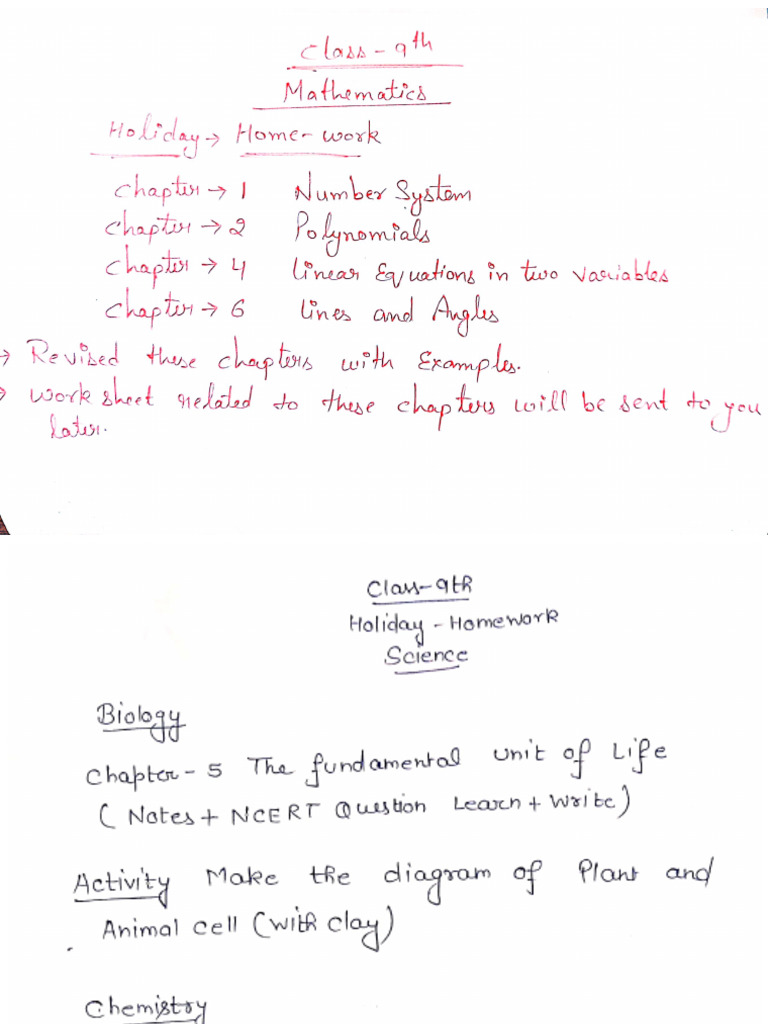 Class - 9th
Mathematics
Holiday → Home-work
Chapter → 1 Number System
Chapter → 2 Polynomials
Chapter → 4 Linear Equations in two variables
Chapter → 6 Lines and Angles
→ Revised these chapters with Examples.
→ Work sheet related to these chapters will be sent to you
later.
Class-9th
Holiday - Homework
Science
Biology
Chapter - 5 The fundamental unit of Life
( Notes + NCERT Question Learn + Write)
Activity Make the diagram of Plant and
Animal cell (with clay)
Chemistry